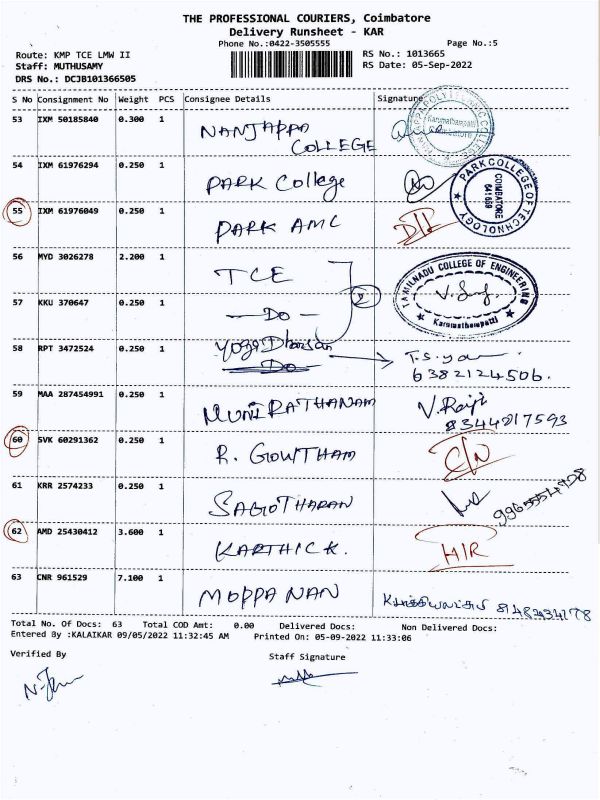 THE PROFESSIONAL COURIERS, Coimbatore
Delivery Runsheet - KAR
Phone No.:0422-3505555 Page No.:5
Route: KMP TCE LMW II RS No.: 1013665
Staff: MUTHUSAMY RS Date: 05-Sep-2022
DRS No.: DCJB101366505
S No Consignment No Weight PCS Consignee Details Signature
53 IXM 50185840 0.300 1 NANJAPPA COLLEGE
54 IXM 61976294 0.250 1 PARK College
PARK COLLEGE OF TECHNOLOGY
COIMBATORE
641 659
55 IXM 61976049 0.250 1 PARK AMC D/L
56 MYD 3026278 2.200 1 TCE
TAMILNADU COLLEGE OF ENGINEERING
Karumathampatti
57 KKU 370647 0.250 1 Do 2
58 RPT 3472524 0.250 1 Yoga Dharsan
Do 6382124506.
59 MAA 287454991 0.250 1 MUNIRATHANAM 8344217593
60 SVK 60291362 0.250 1 R. GOWTHAM
61 KRR 2574233 0.250 1
62 AMD 25430412 3.600 1 KARTHICK. HIR
63 CNR 961529 7.100 1 MOPPANAN
Total No. Of Docs: 63 Total COD Amt: 0.00 Delivered Docs: Non Delivered Docs:
Entered By :KALAIKAR 09/05/2022 11:32:45 AM Printed On: 05-09-2022 11:33:06
Verified By Staff Signature